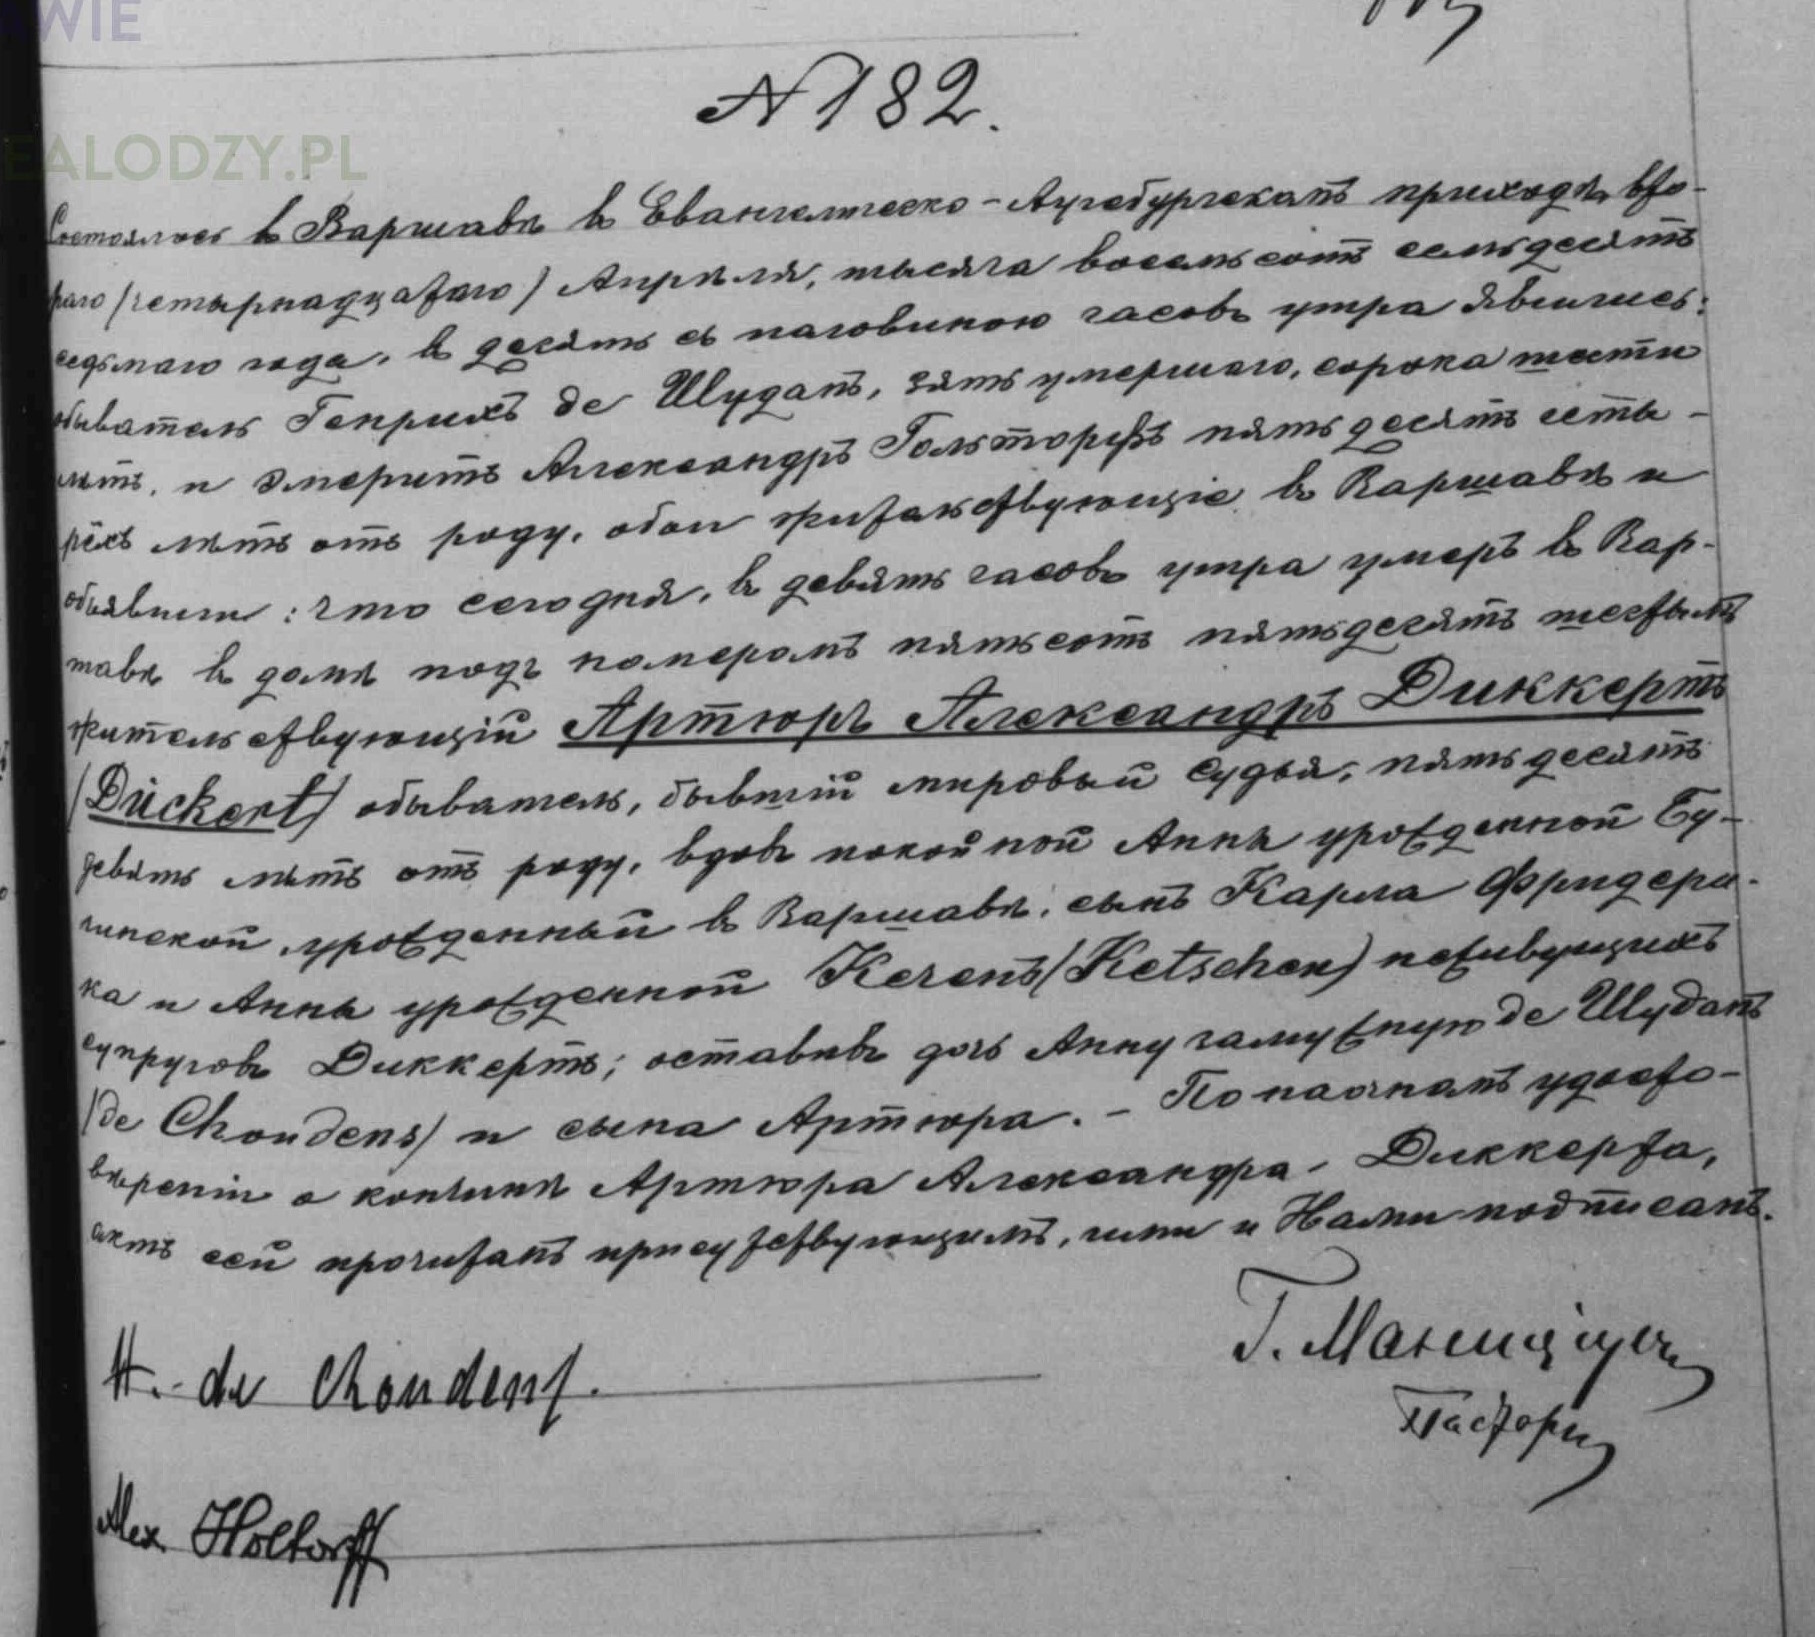 AWIE
EALODZY.PL
N 182.
Состоялось в Варшавѣ в Евангелическо-Аугсбургскомъ приходѣ, вто-
раго (четырнадцатаго) Апрѣля, тысяча восемьсотъ семьдесятъ
седьмаго года, в десять съ половиною часовъ утра явились:
обыватель Генрихъ de Шуданъ, зять умершаго, сорока шести
лѣтъ, и эмеритъ Александръ Гольторфъ пятьдесятъ четы-
рехъ лѣтъ отъ роду, обои жительствующіе в Варшавѣ и
объявили: что сего дня, в девять часовъ утра умеръ в Вар-
шавѣ в домѣ подъ номеромъ пятьсотъ пятьдесятъ шестымъ
жительствующій Артюръ Александръ Диккертъ
(Dückert) обыватель, бывшій мировый судья, пятьдесятъ
девять лѣтъ отъ роду, вдовъ покойной Анны урожденной Бу-
чинской, урожденный в Варшавѣ, сынъ Карла Фридери-
ка и Анны урожденной Кеченъ (Ketschen) неживущихъ
супруговъ Диккертъ; оставивъ дочь Анну замужную de Шуданъ
(de Choudens) и сына Артюра. - По наочномъ удосто-
вѣреніи о кончинѣ Артюра Александра Диккерта,
актъ сей прочитанъ присутствующимъ, ими и Нами подписанъ.
H. de Choudens.
Г. Манициусъ
Пасторъ
Alex. Holtorff